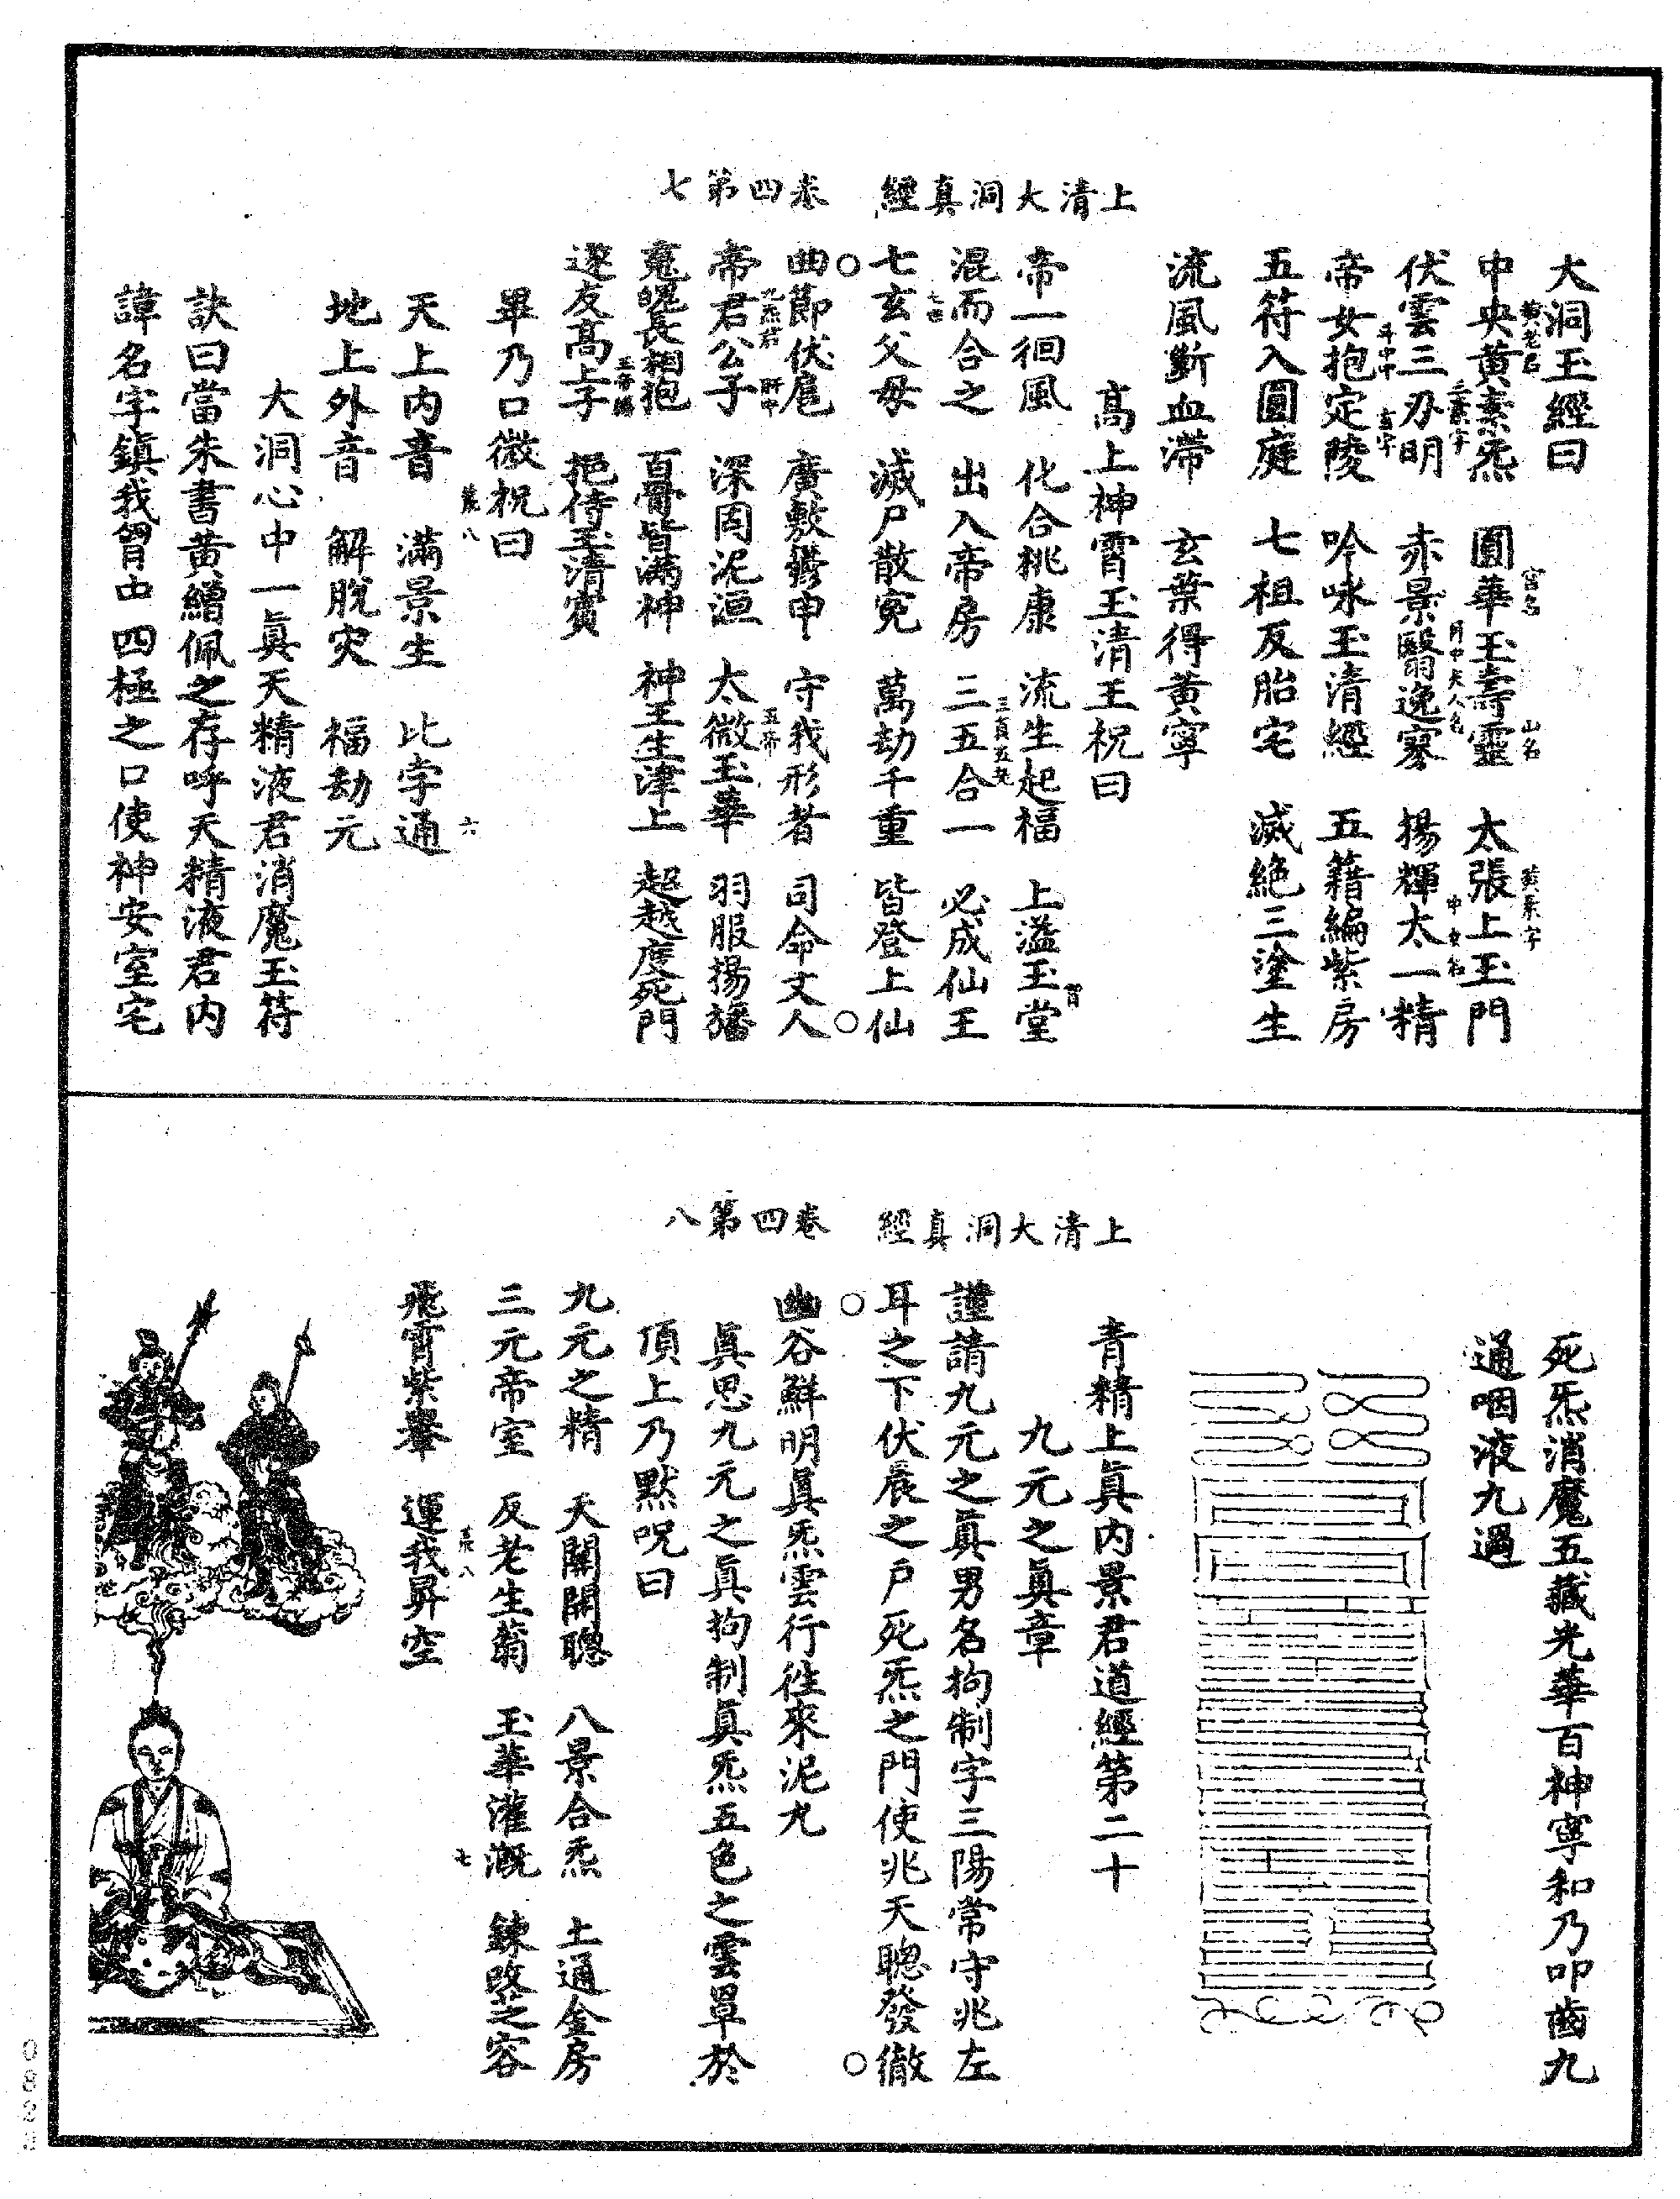 大洞玉經曰
中央黃素炁 圓華玉壽靈 太張上玉門
黃老君 宮名 山名 黃素字
伏雲三刃明 赤景翳逸寥 揚輝太一精
三素字 月中夫人名
帝女抱定陵 吟咏玉清經 五籍編紫房
斗中
五符入圓庭 七祖反胎宅 滅絕三塗生
流風斷血滯 玄葉得黃寧
高上神霄玉清王祝曰
帝一徊風 化合桃康 流生起福 上溢玉堂
混而合之 出入帝房 三五合一 必成仙王
七玄父母 滅尸散寃 萬劫千重 皆登上仙
上清大洞真經 卷四第七
曲節伏扈 廣敷 申 守我形者 司命丈人
帝君公子 深固泥洹 太微玉華 羽服揚旛
五帝
䰟魄長相抱 百骨皆滿神 神王生津上 超越度死門
遂友高上子 挹待玉清賓
畢乃口微祝曰
天上内音 滿景生 比字通
地上外音 解脫灾 福劫元
大洞心中一眞天精液君消魔玉符
訣曰當朱書黃繒佩之存呼天精液君内
諱名字鎮我胷中四極之口使神安室宅
死炁消魔五藏光華百神寧和乃叩齒九
通咽液九過
青精上眞内景君道經第二十
九元之眞章
謹請九元之眞男名拘制字三陽常守兆左
耳之下伏晨之戸死炁之門使兆天聰發徹
上清大洞真經 卷四第八
幽谷鮮明眞炁雲行徃來泥丸
眞思九元之眞拘制眞炁五色之雲罩於
頂上乃默呪曰
九元之精 天關開聰 八景合炁 上通金房
三元帝室 反老生蔔 玉華灌溉 鍊改芝容
飛霄紫轝 運我昇空